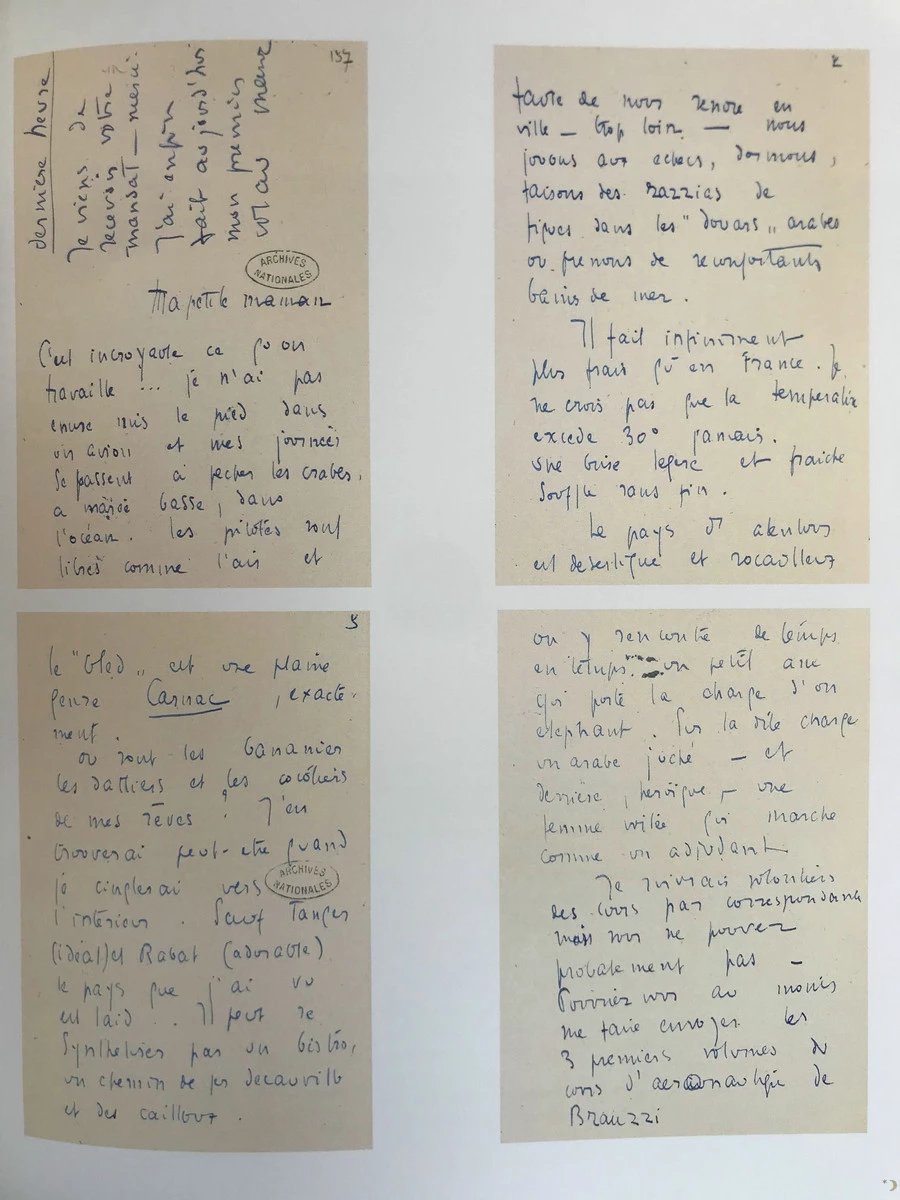 157
dernière heure
Je viens de
recevoir votre
mandat – merci.
J'ai enfin
fait aujourd'hui
mon premier
vol au manz
ARCHIVES
NATIONALES
Ma petite maman
C'est incroyable ce qu'on
travaille ... je n'ai pas
encore mis le pied dans
un avion et mes journées
se passent à pecher les crabes,
a marée basse, dans
l'océan. Les pilotes sont
libres comme l'air et
2
faute de nous rendre en
ville – trop loin – nous
jouons aux echecs, dormons,
faisons des razzias de
figues dans les "douars" arabes
ou prenons de reconfortants
bains de mer.
Il fait infiniment
plus frais qu'en France. Je
ne crois pas que la temperature
excede 30° jamais.
Une brise legere et fraiche
souffle sans fin.
Le pays d'alentours
est desertique et rocailleux
3
le "bled" est une plaine
genre Carnac, exacte-
ment.
ou sont les bananiers
les dattiers et les cocotiers
de mes rêves? J'en
trouverai peut-etre quand
je cinglerai vers
ARCHIVES
NATIONALES
l'interieur. Sauf Tanger
(idéal) et Rabat (adorable)
le pays que j'ai vu
est laid.. Il peut se
synthetiser par un bistro,
un chemin de fer decauville
et des cailloux.
on y rencontre de temps
en temps un petit ane
qui porte la charge d'un
elephant. Sur la dite charge
un arabe juché – et
derriere, heroïque, – une
femme voilée qui marche
comme un adjudant
Je suivrais volontiers
des cours par correspondance
mais vous ne pouvez
probablement pas –
Pourriez vous au moins
me faire envoyer les
3 premiers volumes du
cours d'aeronautique de
Brauzzi